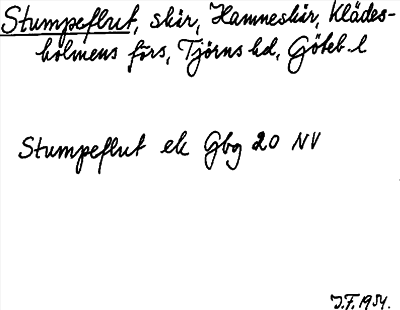 Stumpeflut, skär, Hamneskär, Klädes-
holmens förs, Tjörns hd, Göteb. l
Stumpeflut ek Gbg 20 NV
J.F. 1934.